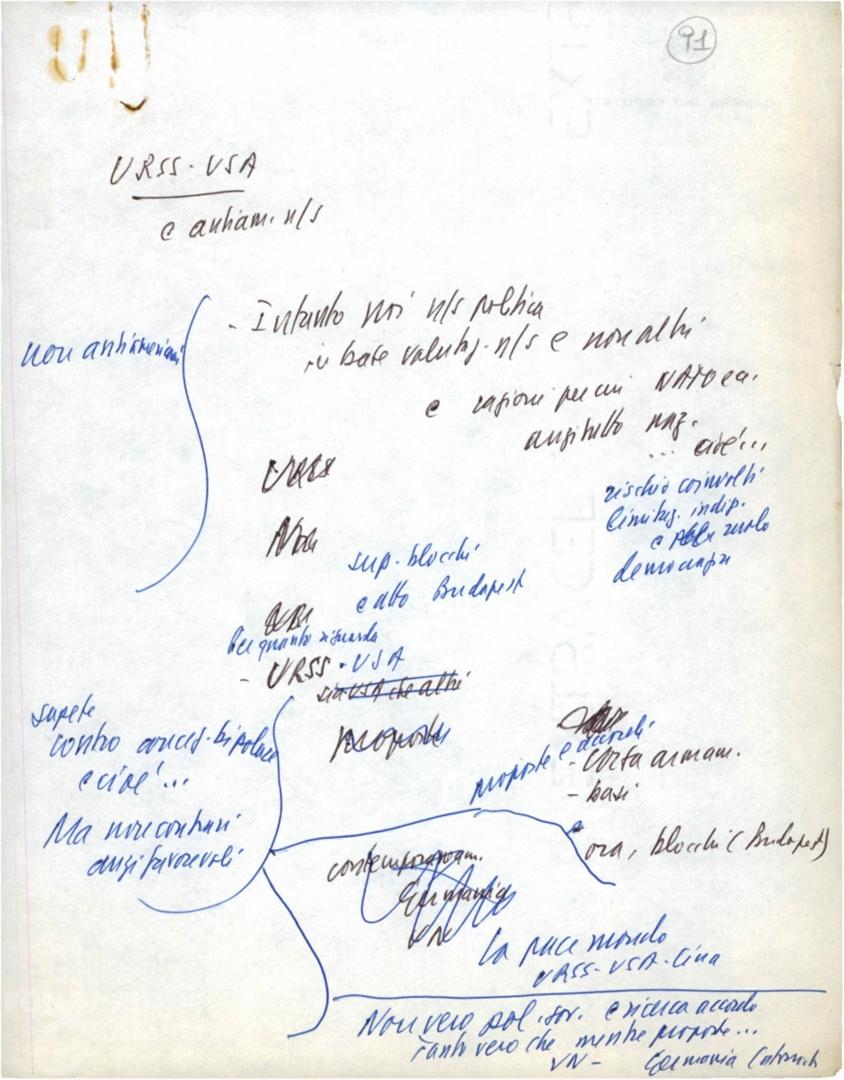 91
URSS - USA
e antiam. n/s
non antiamericani
- Intanto noi n/s politica
in base valutaz. n/s e non altri
e ragioni per cui NATO ea.
anzitutto naz.
... cioè...
rischio coinvolti
limitaz. indip.
e ruolo
democrazia
URSS
Noi
sup. blocchi
e atto Budapest
Per quanto riguarda
- URSS - USA
sia USA che altri
sapete
contro concez. bipolare
e cioè...
Ma non contrari
anzi favorevoli
proposte
proposte e accordi
- Corsa armam.
- basi
ora, blocchi (Budapest)
contemporaneam.
Germania
VN
la pace mondo
URSS - USA - Cina
Non vero pol. sov. è ricerca accordo
Tanto vero che mentre proposte...
VN - Germania